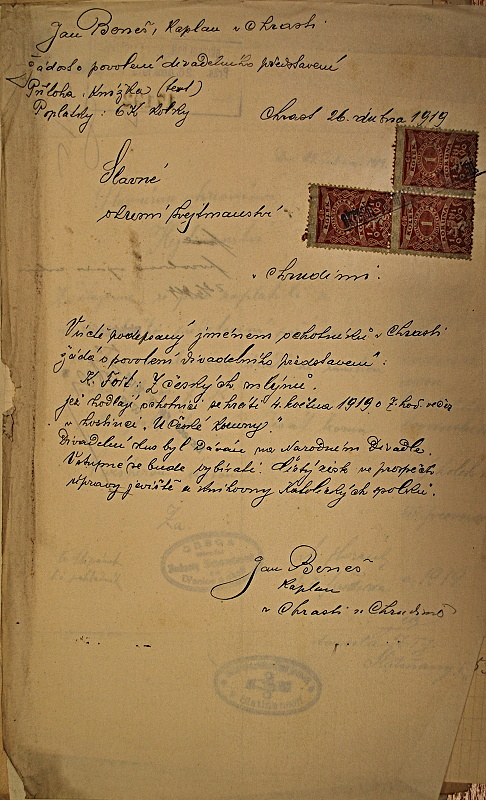 Jan Beneš, kaplan v Chrasti
žádost o povolení divadelního představení
Příloha: Knížka (text)
Poplatky: 6 K kolky
Chrast 26. dubna 1919
Slavné
okresní hejtmanství
v Chrudimi.
V úctě podepsaný jménem ochotníků v Chrasti
žádá o povolení divadelního představení:
K. Fořt: Z českých mlýnů.
jež hodlají ochotníci sehráti 4. května 1919 o 7. hod. večer
v hostinci "U České Koruny."
Divadelní kus byl dáván na Národním Divadle.
Vstupné se bude vybírati. Čistý zisk ve prospěch
úpravy jeviště a knihovny Katolických spolků.
Jan Beneš
kaplan
v Chrasti u Chrudimě